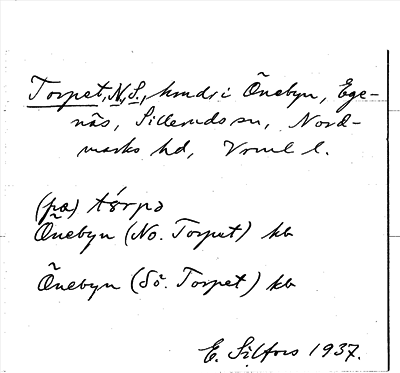 Torpet, N., S., hmdr i Õnebyn, Ege-
näs, Sillerudssn, Nord-
marks hd, Vrml l.
(pæ) tórpə
Õnebyn (No. Torpet) kb
Õnebyn (Sö. Torpet) kb
E. Silfors 1937.